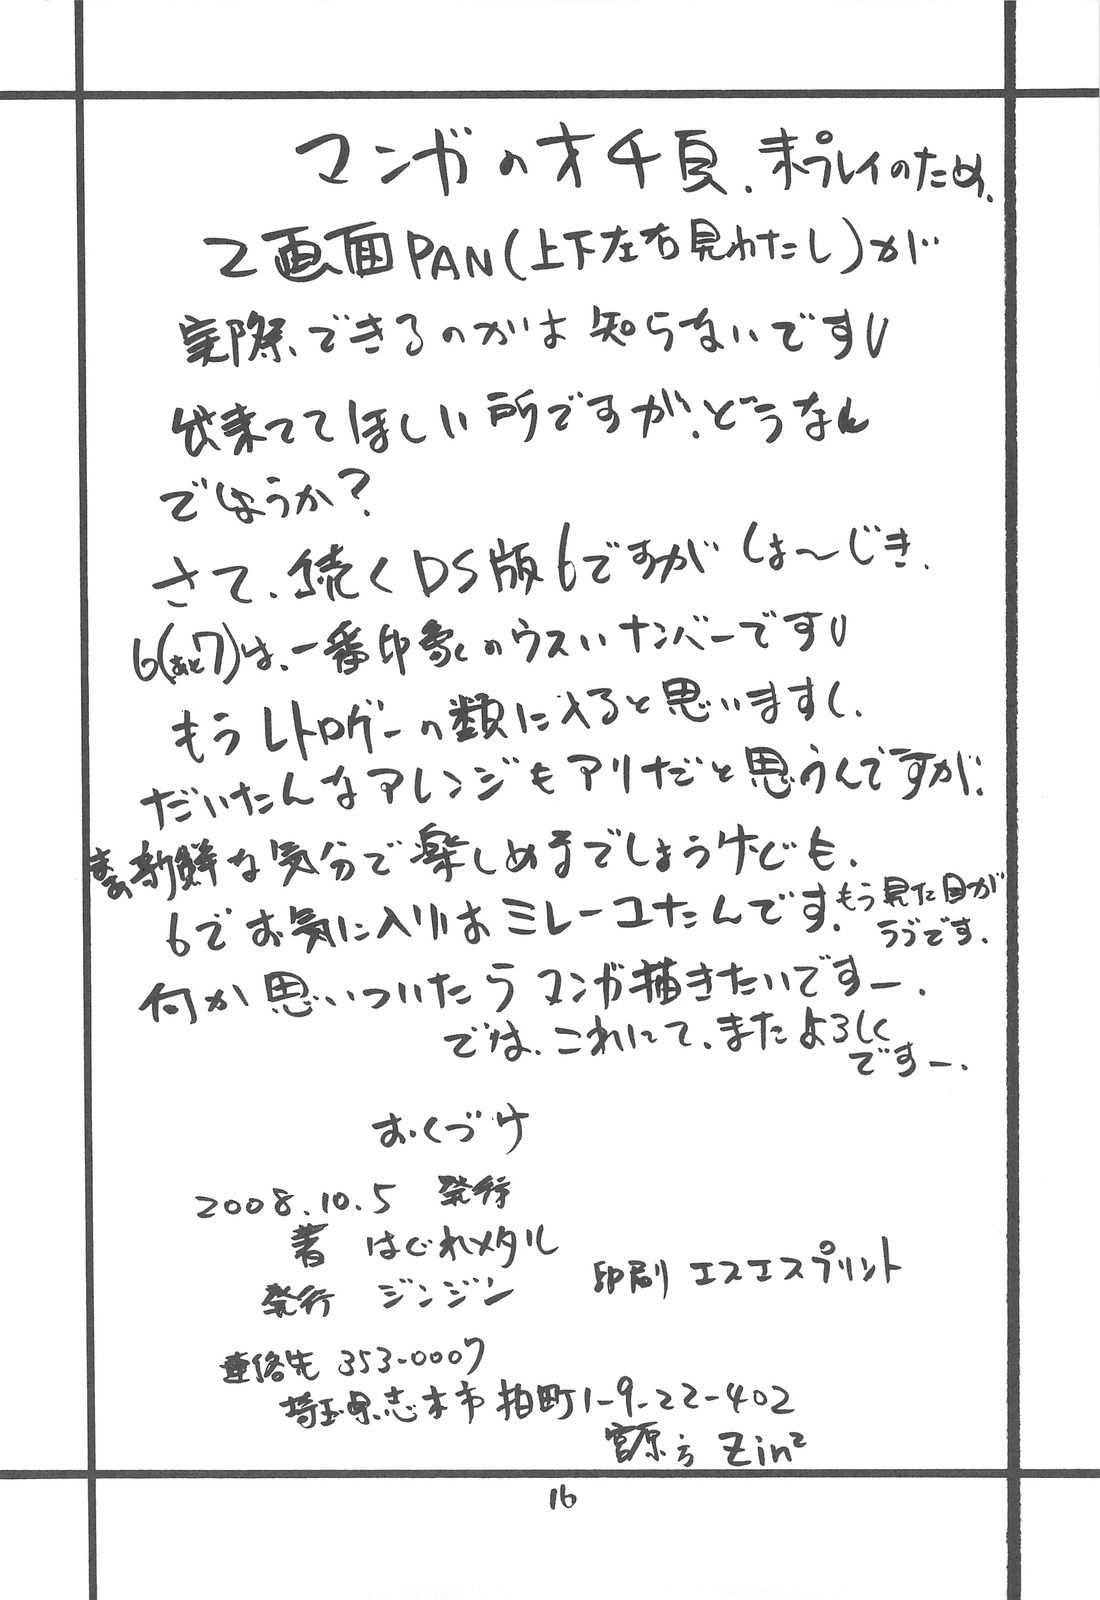 マンガのオチ頁、未プレイのため、
2画面PAN(上下左右見わたし)が
実際、できるのかは知らないですU
出来ててほしい所ですが、どうなん
でしょうか?
さて、続くDS版6ですがしょ〜じき、
6(あと7)は、一番印象のウスいナンバーですU
もうレトロゲーの類に入ると思いますし、
だいたんなアレンジもアリだと思うんですが、
まあ新鮮な気分で楽しめるでしょうけども、
6でお気に入りはミレーユたんです。もう見た目が
ラブです。
何か思いついたらマンガ描きたいですー。
では、これにて、またよろしく
ですー。
おくづけ
2008.10.5 発行
著 はぐれメタル
発行 ジンジン
印刷 エスエスプリント
連絡先 353-0007
埼玉県志木市柏町1-9-22-402
宮原方 Zin²
16